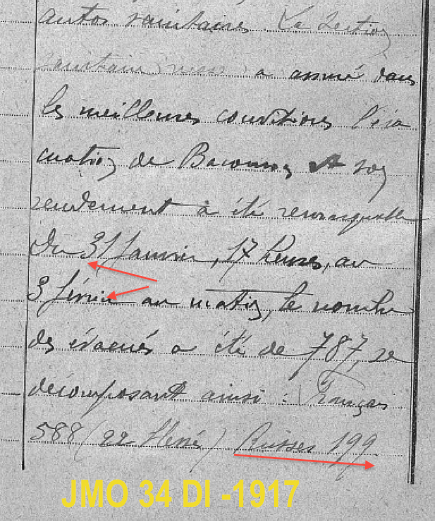 autos sanitaires. La Section
sanitaire a assuré dans
les meilleures conditions l'éva
cuation de Baconnes et son
rendement a été remarquable
Du 31 Janvier, 17 heures, au
3 février au matin, le nombre
des évacués a été de 787, se
décomposant ainsi : Français
588 (22 ) Russes 199
JMO 34 DI -1917